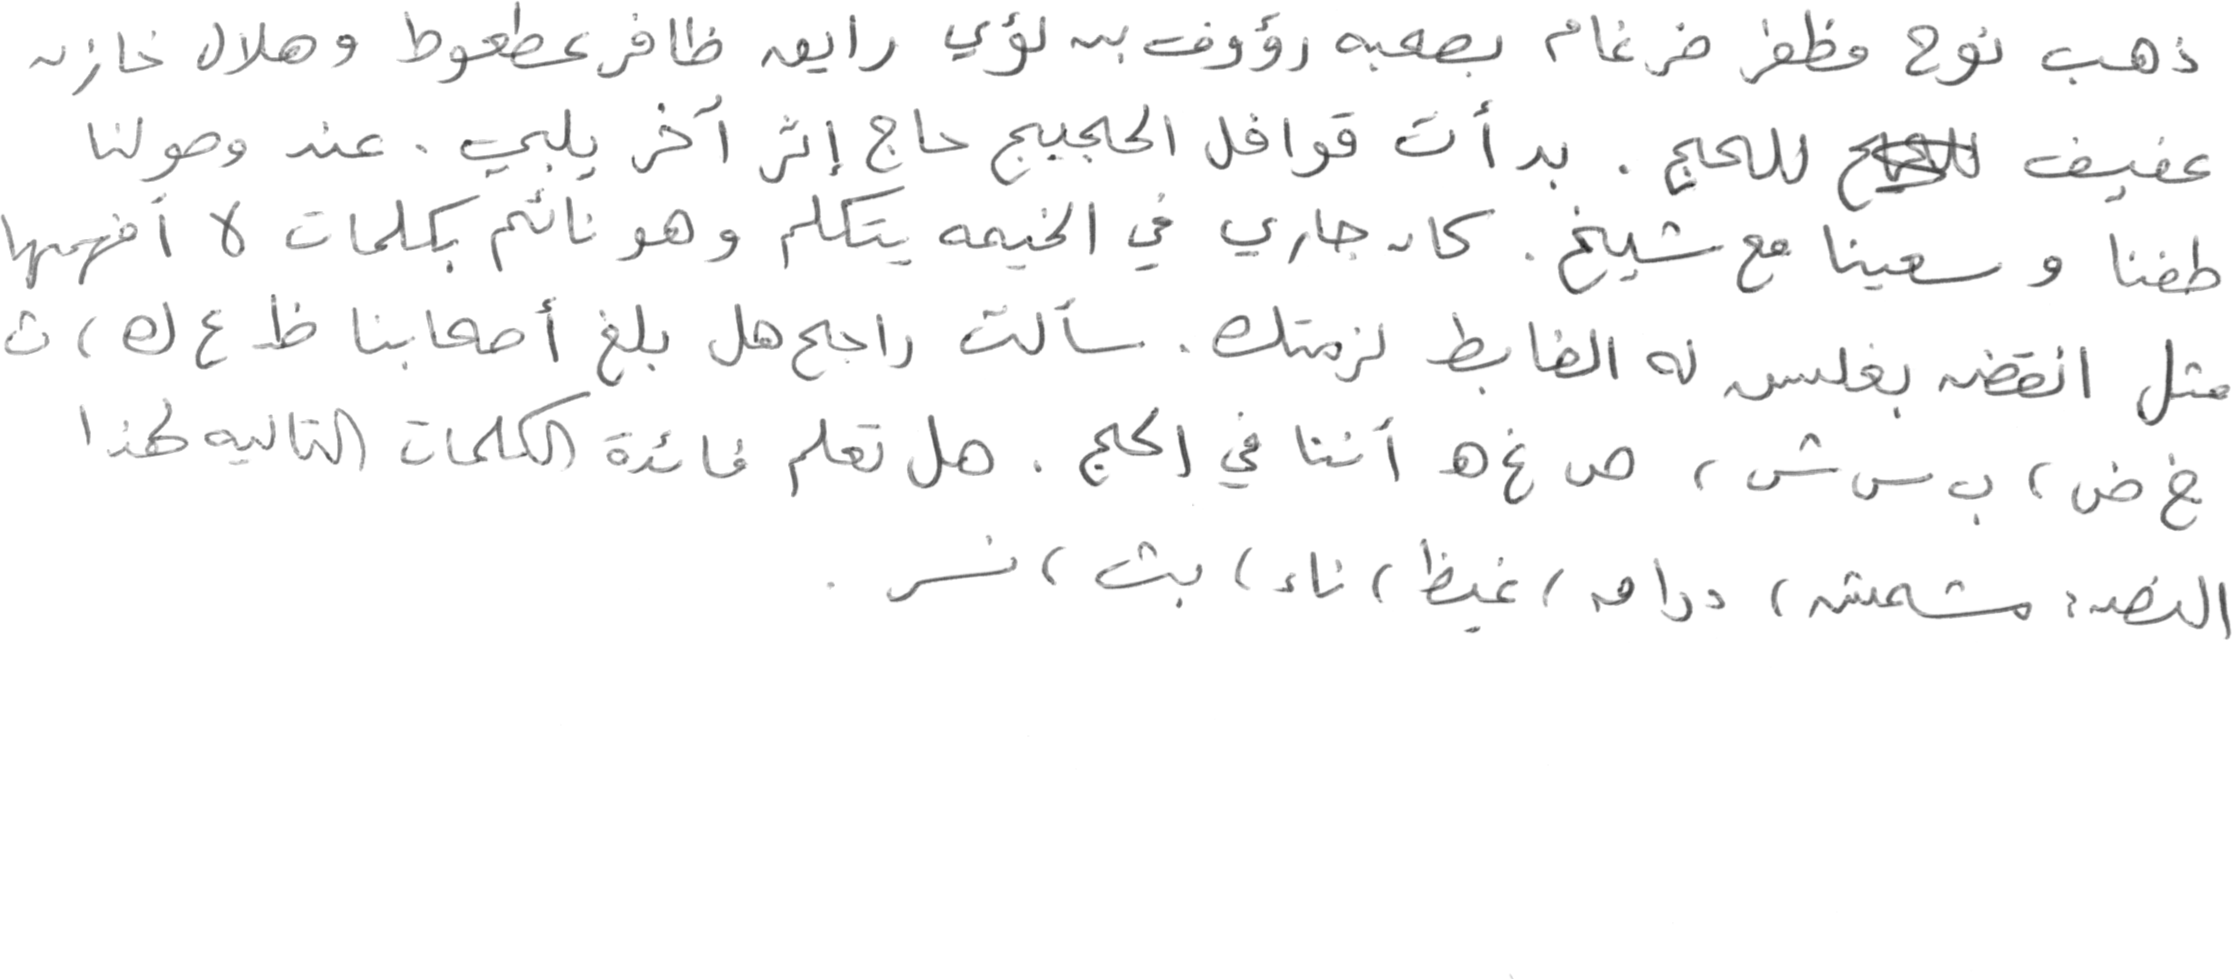 ذهب نوح مظفر ضرغام بصحبه رؤوف بن لؤي رايق ظافر عطعوط و هلال خازن
عفيف للحج . بدأت قوافل الحجيج حاج إثر آخر يلبي . عند وصولنا
طفنا و سعينا مع شيخ . كان جاري في الخيمه يتكلم وهو نائم بكلمات لا أفهمها
مثل انقض بغلس له الضابط لزمتك . سألت راجح هل بلغ أصحابنا ظ ع ك ، ث
خ ض ، ب س ش ، ص غ ه أننا في الحج . هل تعلم فائدة الكلمات التاليه لهذا
النص : مشمش ، دراق ، غيظ ، ناء ، بث ، نسر .